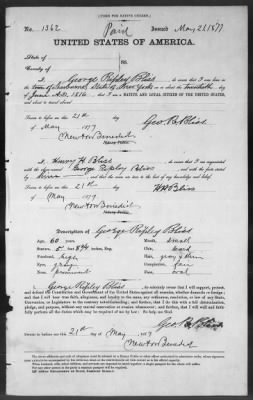 [FORM FOR NATIVE CITIZEN.]
No. 1362 Paid Issued May 21 1877
UNITED STATES OF AMERICA.
State of
County of
ss.
I, George Ripley Bliss, do swear that I was born in the
town of New York on or about the twentieth day
of June A.D. 1816, that I am a NATIVE AND LOYAL CITIZEN OF THE UNITED STATES,
and about to travel abroad.
Sworn to before me this 21st day
of May 1877
Newton Benedict
Notary Public.
Geo. R. Bliss
I, Henry H. Bliss, do swear that I am acquainted
with the above-named George Ripley Bliss, and with the facts
by and that the same are true to the best of my knowledge and belief.
Sworn to before me this 21st day
of May 1877
Newton Benedict
Notary Public.
H H Bliss
Description of George Ripley Bliss
Age: 60 years Mouth: small
Stature: 5 feet inches, Eng. Chin:
Forehead: high Hair: gray
Eyes: gray Complexion: fair
Nose: prominent Face: oval
I, George Ripley Bliss, do solemnly swear that I will support, protect,
and defend the Constitution and Government of the United States against all enemies, whether domestic or foreign;
and that I will bear true faith, allegiance, and loyalty to the same, any ordinance, resolution, or law of any State,
Convention, or Legislature to the contrary notwithstanding; and further, that I do this with a full determination,
pledge, and purpose, without any mental reservation or evasion whatsoever; and, further, that I will well and faith-
fully perform all the duties which may be required of me by law: So help me God.
Geo. R. Bliss
Sworn to before me this 21st day of May 1877
Newton Benedict